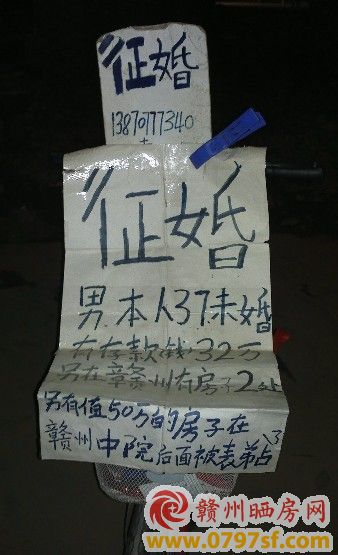 征婚
13870777340
征婚
男本人37未婚
有存款钱32万
另在赣州有房子2处
另有值50万的房子在
赣州中院后面被表弟占了
赣州晒房网
www.0797sf.com